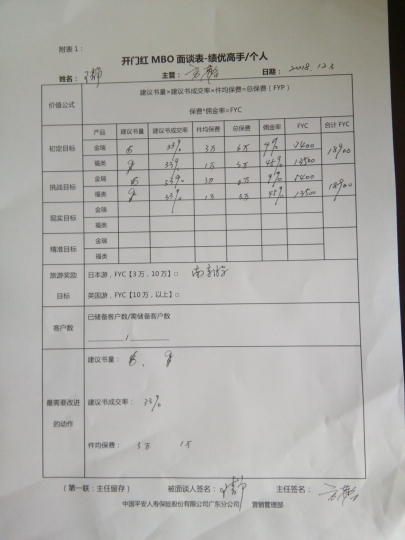 附表 1：
开门红 MBO 面谈表-绩优高手/个人
姓名： 主管： 日期： 2018.12.3
建议书量×建议书成交率×件均保费=总保费（FYP）
价值公式
保费*佣金率=FYC
产品 建议书量 建议书成交率 件均保费 总保费 佣金率 FYC 合计 FYC
初定目标 金瑞 33% 3万 6万 9% 5400 18900
福类 33% 1万 3万 45% 13500
挑战目标 金瑞 33% 3万 6万 9% 5400 18900
福类 33% 1万 3万 45% 13500
现实目标 金瑞
福类
精准目标 金瑞
福类
旅游奖励 日本游，FYC【3 万，10 万】□
目标 英国游，FYC【10 万，以上】□
客户数 已储备客户数/需储备客户数
/
建议书量：
最需要改进 建议书成交率： 33%
的动作
件均保费： 3万 1万
（第一联：主任留存） 被面谈人签名： 主任签名：
中国平安人寿保险股份有限公司广东分公司 营销管理部